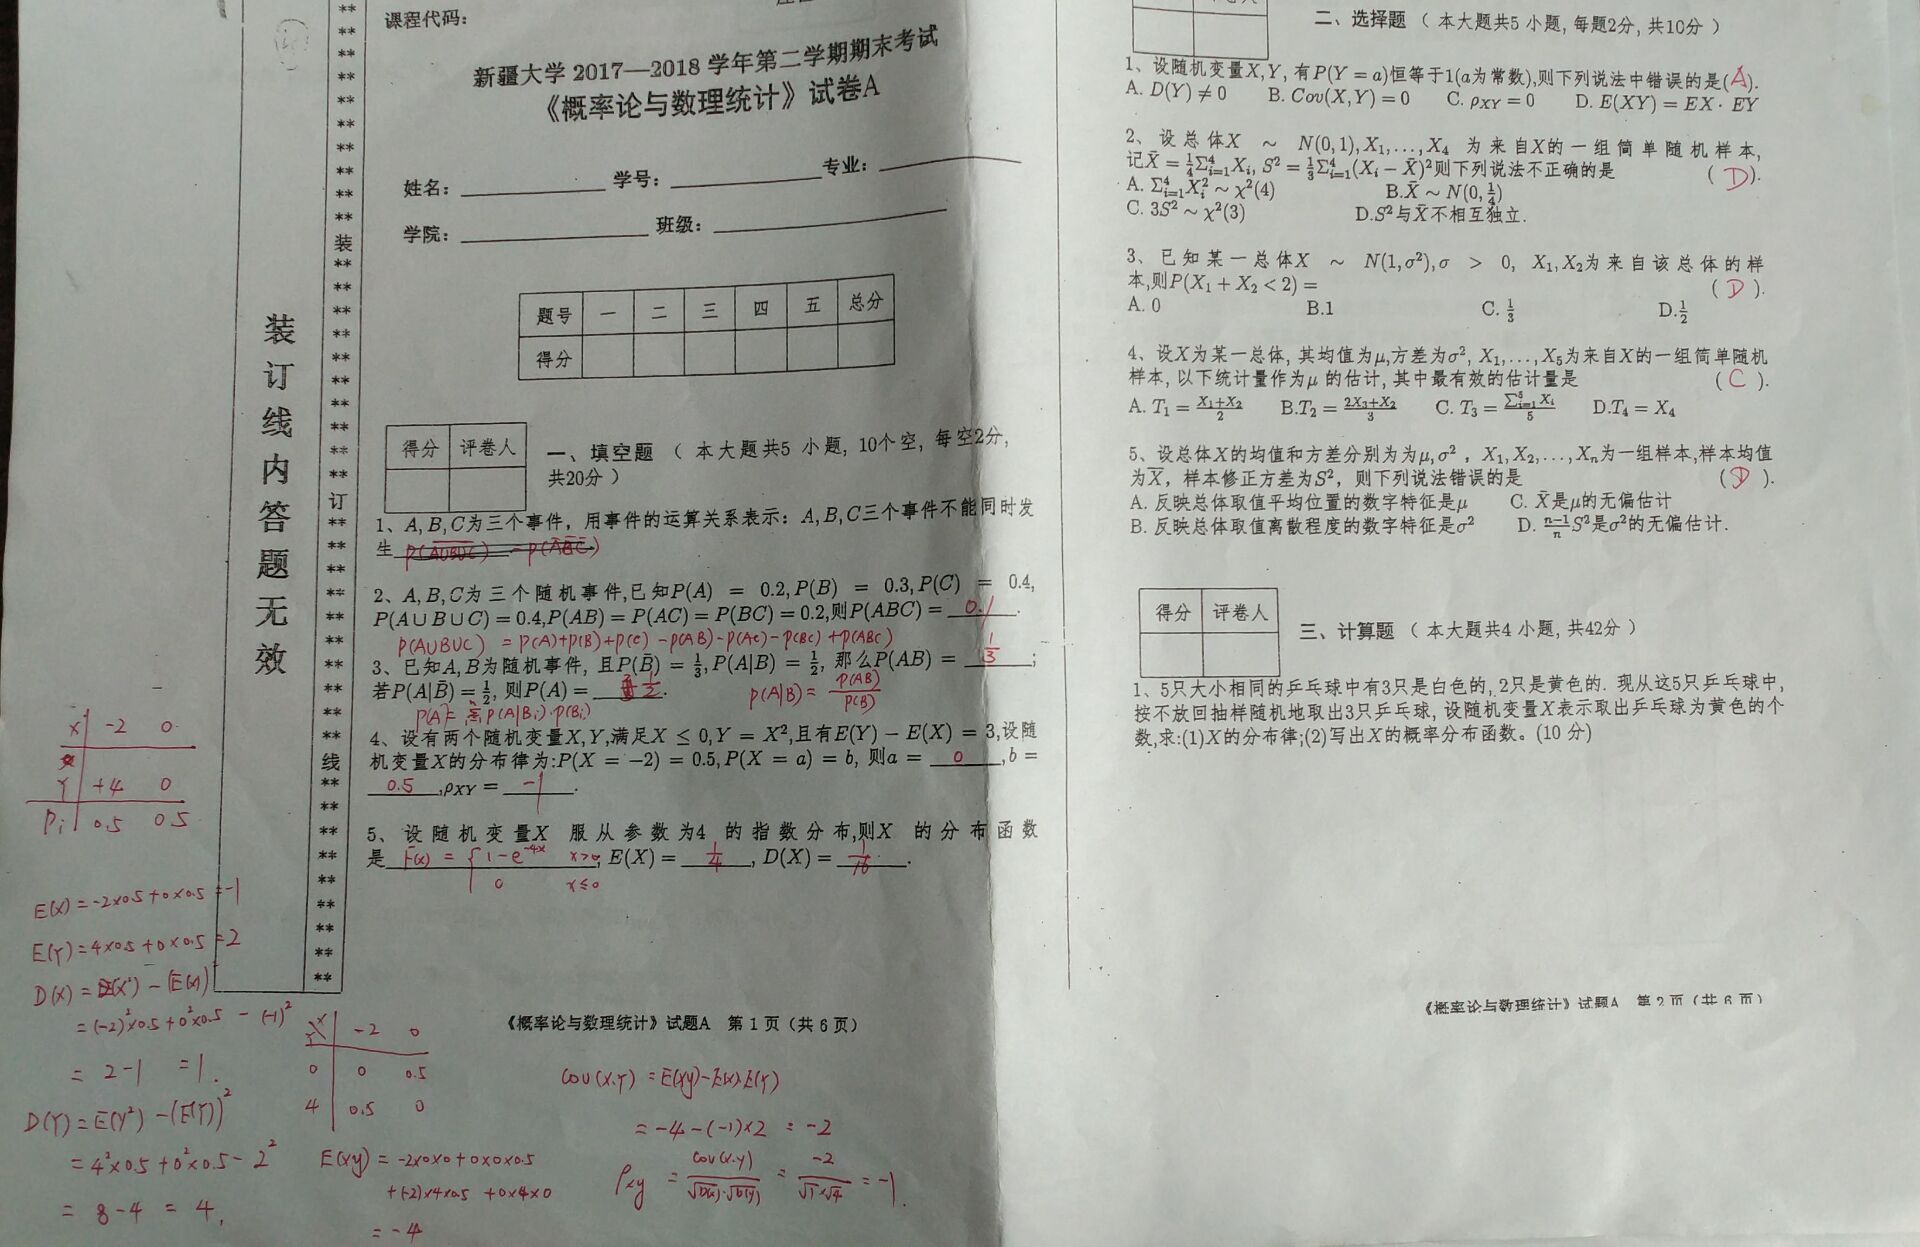 课程代码:
新疆大学 2017—2018 学年第二学期期末考试
《概率论与数理统计》试卷A
姓名: 学号: 专业:
学院: 班级:
题号 一 二 三 四 五 总分
得分
装订线内答题无效
装
订
线
得分 评卷人
一、填空题 ( 本大题共5 小题, 10个空, 每空2分,
共20分 )
1、A, B, C为三个事件, 用事件的运算关系表示: A, B, C三个事件不能同时发
生
2、A, B, C为三个随机事件,已知P(A) = 0.2, P(B) = 0.3, P(C) = 0.4,
P(A∪B∪C) = 0.4, P(AB) = P(AC) = P(BC) = 0.2,则P(ABC) = 0.1.
P(AUBUC) = P(A)+P(B)+P(C) -P(AB)-P(AC)-P(BC)+P(ABC)
3、已知A, B为随机事件, 且P(B̄) = 1/3, P(A|B) = 1/2, 那么P(AB) = 1/3;
若P(A|B̄) = 1/2, 则P(A) = 1/2.
P(A|B) = P(AB)/P(B)
4、设有两个随机变量X, Y,满足X ≤ 0, Y = X²,且有E(Y) − E(X) = 3,设随
机变量X的分布律为:P(X = −2) = 0.5, P(X = a) = b, 则a = 0, b =
0.5, ρXY = -1.
5、设随机变量X 服从参数为4 的指数分布,则X 的分布函数
是 F(x) = { 1-e^-4x x>0, E(X) = 1/4, D(X) = 1/16.
0 x≤0
《概率论与数理统计》试题A 第 1 页 (共 6 页)
X -2 0
Y +4 0
Pi 0.5 0.5
E(X) = -2×0.5+0×0.5 = -1
E(Y) = 4×0.5+0×0.5 = 2
D(X) = E(X²) - (E(X))²
= (-2)²×0.5+0²×0.5 - (-1)²
= 2-1 = 1.
D(Y) = E(Y²) - (E(Y))²
= 4²×0.5+0²×0.5 - 2²
= 8-4 = 4.
X -2 0
Y
0 0 0.5
4 0.5 0
E(XY) = -2×0×0+0×0×0.5
+(-2)×4×0.5 +0×4×0
= -4
COV(X,Y) = E(XY)-E(X)E(Y)
= -4-(-1)×2 = -2
ρxy = COV(X,Y)/√D(X)·√D(Y) = -2/√1×√4 = -1.
评卷人
二、选择题 ( 本大题共5 小题, 每题2分, 共10分 )
1、设随机变量X, Y, 有P(Y = a)恒等于1(a为常数),则下列说法中错误的是(A).
A. D(Y) ≠ 0 B. Cov(X, Y) = 0 C. ρXY = 0 D. E(XY) = EX · EY
2、设总体X ∼ N(0, 1), X1, . . . , X4 为来自X的一组简单随机样本,
记X̄ = 1/4 Σ⁴i=1 Xi, S² = 1/3 Σ⁴i=1 (Xi − X̄)²则下列说法不正确的是 (D).
A. Σ⁴i=1 Xi² ∼ χ²(4) B.X̄ ∼ N(0, 1/4)
C. 3S² ∼ χ²(3) D.S²与X̄不相互独立.
3、已知某一总体X ∼ N(1, σ²), σ > 0, X1, X2为来自该总体的样
本,则P(X1 + X2 < 2) = (D).
A. 0 B.1 C. 1/3 D. 1/2
4、设X为某一总体, 其均值为μ,方差为σ², X1, . . . , X5为来自X的一组简单随机
样本, 以下统计量作为μ 的估计, 其中最有效的估计量是 (C).
A. T1 = X1+X2/2 B.T2 = 2X3+X2/3 C. T3 = Σ⁵i=1 Xi/5 D.T4 = X4
5、设总体X的均值和方差分别为为μ, σ² , X1, X2, . . . , Xn为一组样本,样本均值
为X̄, 样本修正方差为S², 则下列说法错误的是 (D).
A. 反映总体取值平均位置的数字特征是μ C. X̄是μ的无偏估计
B. 反映总体取值离散程度的数字特征是σ² D. n−1/n S²是σ²的无偏估计.
得分 评卷人
三、计算题 ( 本大题共4 小题, 共42分 )
1、5只大小相同的乒乓球中有3只是白色的, 2只是黄色的. 现从这5只乒乓球中,
按不放回抽样随机地取出3只乒乓球, 设随机变量X表示取出乒乓球为黄色的个
数,求:(1)X的分布律;(2)写出X的概率分布函数。(10 分)
《概率论与数理统计》试题A 第 2 页 (共 6 页)